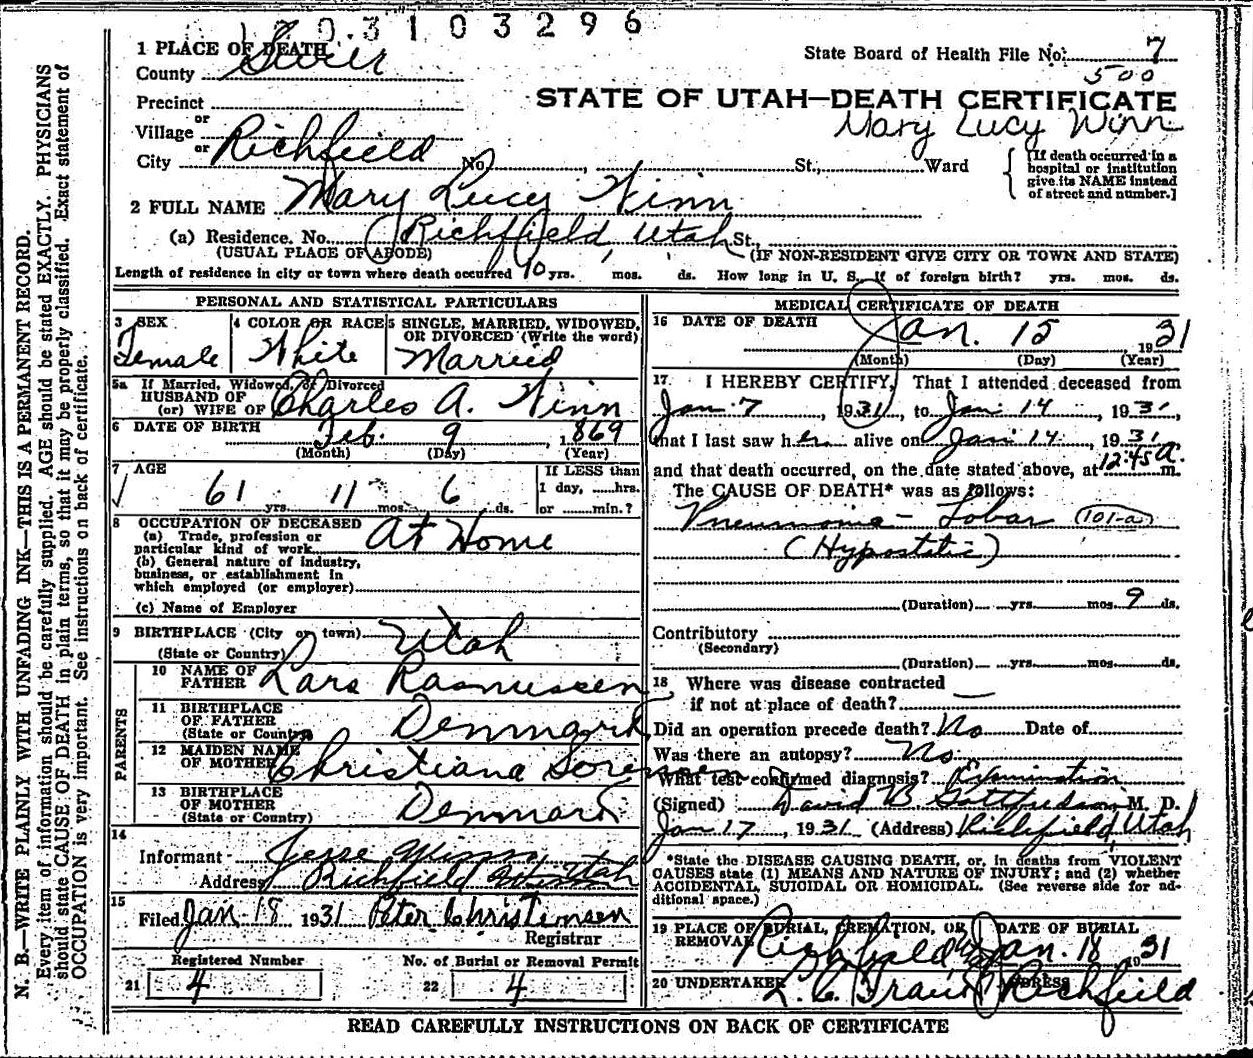 1 0 3 1 0 3 2 9 6
1 PLACE OF DEATH
County Sevier
State Board of Health File No. 7
500
Precinct
or
STATE OF UTAH—DEATH CERTIFICATE
Mary Lucy Winn
Village
or
City Richfield No. , St., Ward
[If death occurred in a hospital or institution give its NAME instead of street and number.]
2 FULL NAME Mary Lucy Winn
(a) Residence. No. Richfield, Utah St.,
(USUAL PLACE OF ABODE) (IF NON-RESIDENT GIVE CITY OR TOWN AND STATE)
Length of residence in city or town where death occurred 40 yrs. mos. ds. How long in U. S., if of foreign birth? yrs. mos. ds.
PERSONAL AND STATISTICAL PARTICULARS
3 SEX
Female
4 COLOR OR RACE
White
5 SINGLE, MARRIED, WIDOWED, OR DIVORCED (Write the word)
Married
5a If Married, Widowed, or Divorced
HUSBAND OF
(or) WIFE OF Charles A. Winn
6 DATE OF BIRTH Feb. 9, 1869
(Month) (Day) (Year)
7 AGE
61 yrs. 11 mos. 6 ds.
If LESS than
1 day, ......hrs.
or ......min.?
8 OCCUPATION OF DECEASED
(a) Trade, profession or
particular kind of work At Home
(b) General nature of industry,
business, or establishment in
which employed (or employer)
(c) Name of Employer
9 BIRTHPLACE (City or town) Utah
(State or Country)
PARENTS
10 NAME OF
FATHER Lars Rasmussen
11 BIRTHPLACE
OF FATHER Denmark
(State or Country)
12 MAIDEN NAME
OF MOTHER Christiana Sorensen
13 BIRTHPLACE
OF MOTHER Denmark
(State or Country)
14
Informant Jesse Winn
Address Richfield Utah
15
Filed Jan 18 1931 Peter Christensen
Registrar
Registered Number
21 4
No. of Burial or Removal Permit
22 4
MEDICAL CERTIFICATE OF DEATH
16 DATE OF DEATH
Jan. 15 1931
(Month) (Day) (Year)
17. I HEREBY CERTIFY, That I attended deceased from
Jan 7, 1931, to Jan 14, 1931,
that I last saw her alive on Jan 14, 1931
and that death occurred, on the date stated above, at 12:45 a. m.
The CAUSE OF DEATH* was as follows:
Pneumonia - Lobar (101-a)
(Hypostatic)
(Duration) yrs. mos. 9 ds.
Contributory
(Secondary)
(Duration) yrs. mos. ds.
18 Where was disease contracted
if not at place of death? —
Did an operation precede death? No Date of
Was there an autopsy? No
What test confirmed diagnosis? Examination
(Signed) David B Gottfredson M. D.
Jan 17, 1931 (Address) Richfield, Utah
*State the DISEASE CAUSING DEATH, or, in deaths from VIOLENT
CAUSES state (1) MEANS AND NATURE OF INJURY; and (2) whether
ACCIDENTAL, SUICIDAL OR HOMICIDAL. (See reverse side for ad-
ditional space.)
19 PLACE OF BURIAL, CREMATION, OR
REMOVAL Richfield
DATE OF BURIAL
Jan. 18 1931
20 UNDERTAKER ADDRESS
Richfield
READ CAREFULLY INSTRUCTIONS ON BACK OF CERTIFICATE
N. B.—WRITE PLAINLY WITH UNFADING INK—THIS IS A PERMANENT RECORD.
Every item of information should be carefully supplied. AGE should be stated EXACTLY. PHYSICIANS
should state CAUSE OF DEATH in plain terms, so that it may be properly classified. Exact statement of
OCCUPATION is very important. See instructions on back of certificate.